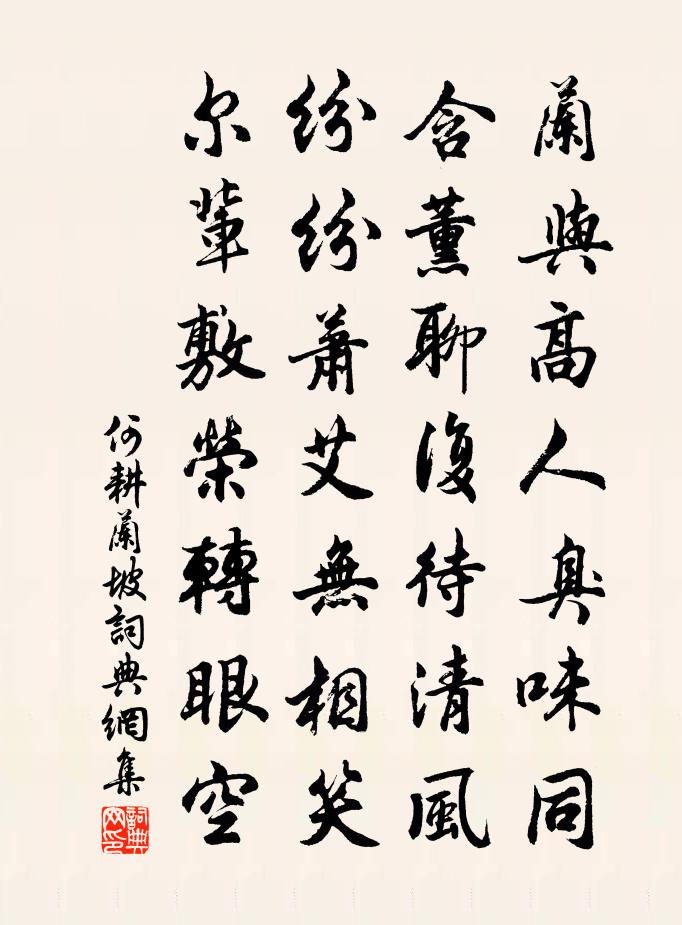 蘭與高人臭味同
含薰聊復待清風
紛紛蕭艾無相笑
尔輩敷榮轉眼空
何耕蘭坡詞典網集
詞典网印